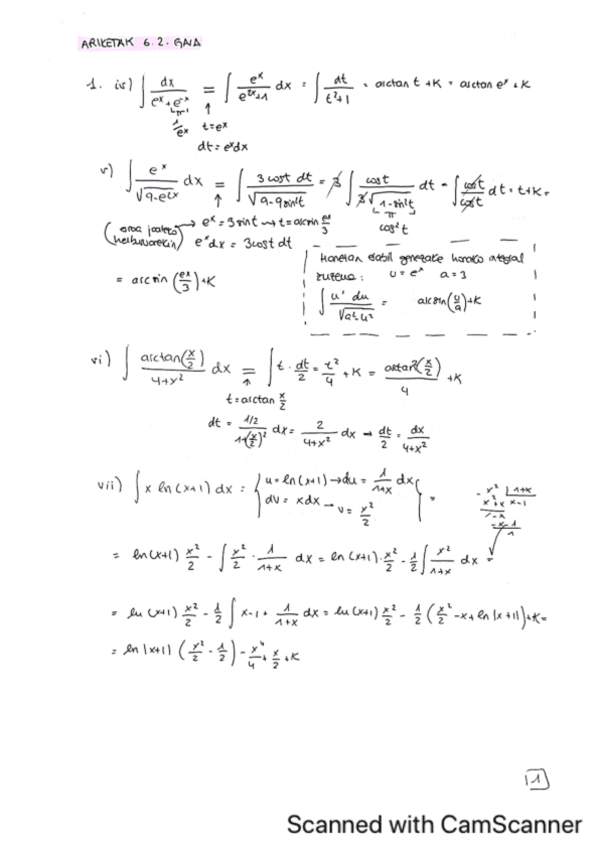 ARIKETAK 6.2. GAIA
1. iv) ∫ dx/(e^x+e^-x) = ∫ e^x/(e^2x+1) dx = ∫ dt/(t²+1) = arctan t + K = arctan e^x + K
1/e^x t=e^x
dt = e^x dx
v) ∫ e^x/√(9-e^2x) dx = ∫ 3 cost dt/√(9-9sin²t) = 3 ∫ cost/(3√(1-sin²t)) dt = ∫ cost/cost dt = t+K =
cos²t
e^x = 3 sint → t = arcsin e^x/3
e^x dx = 3 cost dt
= arcsin (e^x/3)+K
Honetan erabil genezake horako integral
zuzena: u = e^x a = 3
∫ u' du/√(a²-u²) = arcsin(u/a)+K
vi) ∫ arctan(x/2)/(4+x²) dx = ∫ t · dt/2 = t²/4 + K = arctan²(x/2)/4 + K
t = arctan x/2
dt = (1/2)/(1+(x/2)²) dx = 2/(4+x²) dx → dt/2 = dx/(4+x²)
vii) ∫ x ln(x+1) dx = { u = ln(x+1) → du = 1/(1+x) dx
dv = xdx → v = x²/2 } =
= ln(x+1) x²/2 - ∫ x²/2 · 1/(1+x) dx = ln(x+1) · x²/2 - 1/2 ∫ x²/(1+x) dx =
= ln(x+1) x²/2 - 1/2 ∫ x-1 + 1/(1+x) dx = ln(x+1) x²/2 - 1/2 (x²/2 - x + ln|x+1|) + K =
= ln|x+1| (x²/2 - 1/2) - x^4/4 + x/2 + K
1
Scanned with CamScanner